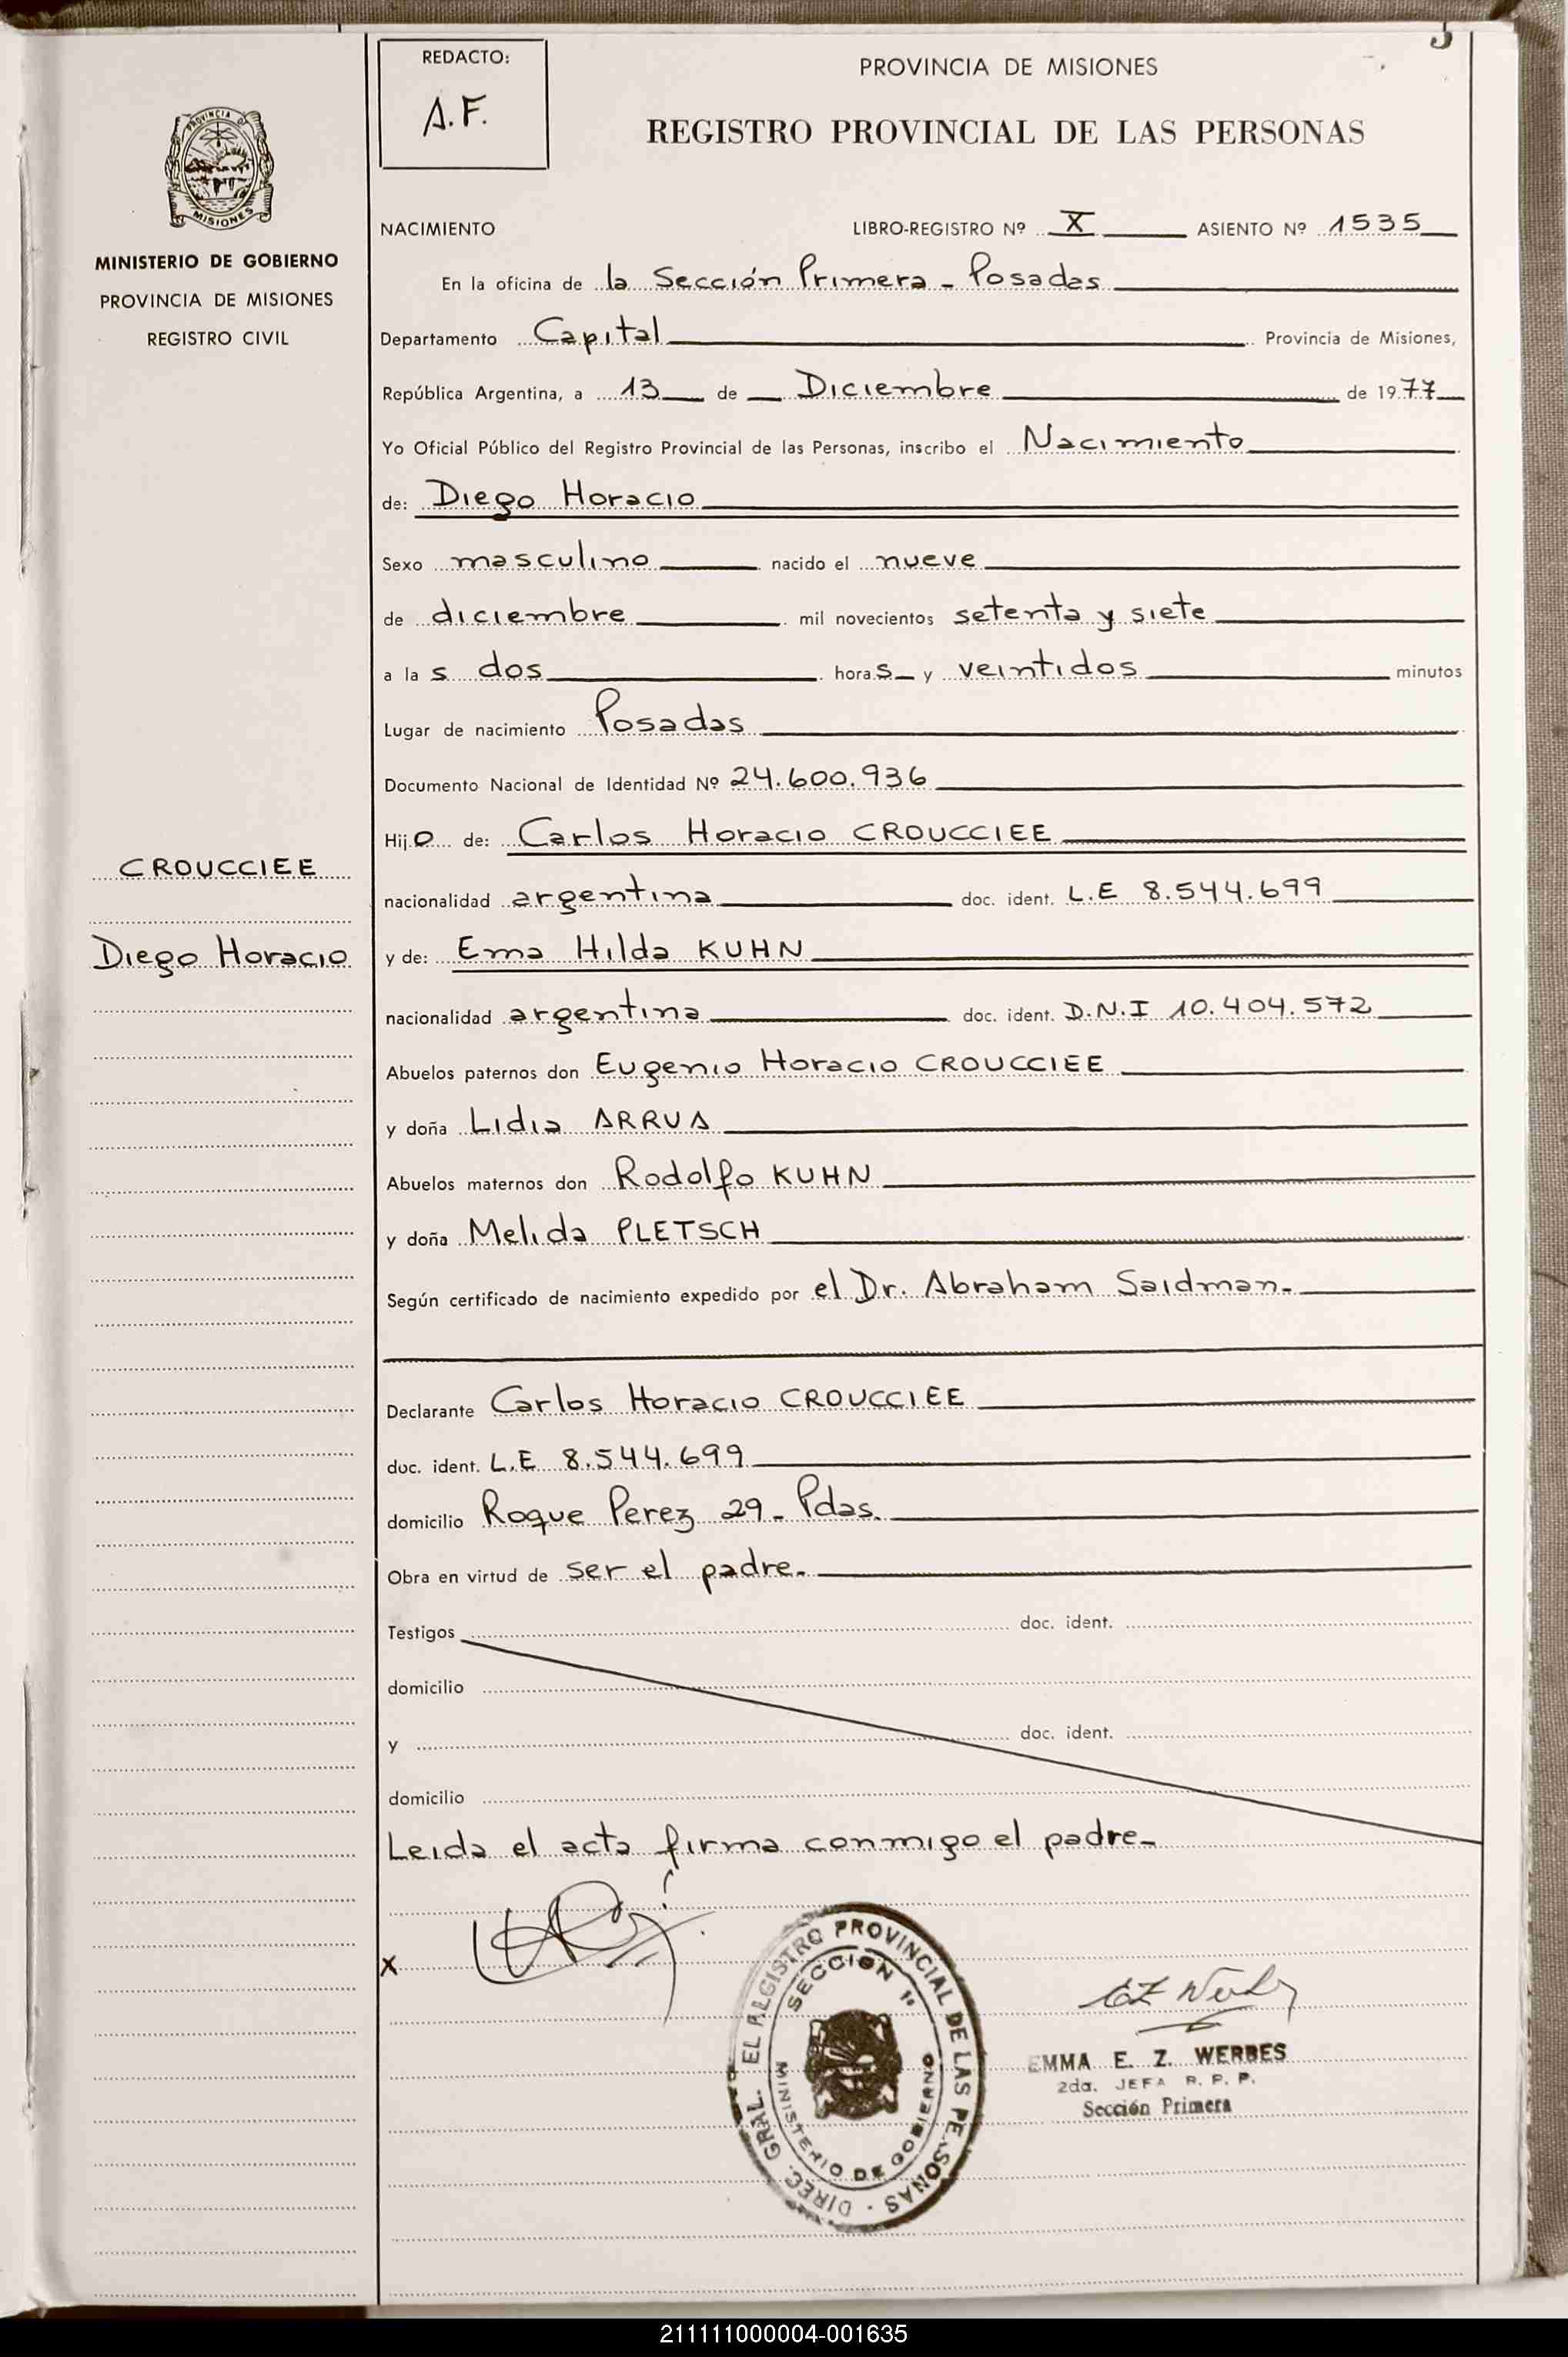 3
REDACTO:
A.F.
PROVINCIA DE MISIONES
REGISTRO PROVINCIAL DE LAS PERSONAS
PROVINCIA DE
MISIONES
MINISTERIO DE GOBIERNO
PROVINCIA DE MISIONES
REGISTRO CIVIL
NACIMIENTO LIBRO-REGISTRO Nº X ASIENTO Nº 1535
En la oficina de la Sección Primera - Posadas
Departamento Capital Provincia de Misiones,
República Argentina, a 13 de Diciembre de 1977
Yo Oficial Público del Registro Provincial de las Personas, inscribo el Nacimiento
de: Diego Horacio
Sexo masculino nacido el nueve
de diciembre mil novecientos setenta y siete
a las dos horas y veintidos minutos
Lugar de nacimiento Posadas
Documento Nacional de Identidad Nº 24.600.936
Hijo de: Carlos Horacio CROUCCIEE
CROUCCIEE
nacionalidad argentina doc. ident. L.E 8.544.699
Diego Horacio
y de: Ema Hilda KUHN
nacionalidad argentina doc. ident. D.N.I 10.404.572
Abuelos paternos don Eugenio Horacio CROUCCIEE
y doña Lidia ARRUA
Abuelos maternos don Rodolfo KUHN
y doña Melida PLETSCH
Según certificado de nacimiento expedido por el Dr. Abraham Saidman.
Declarante Carlos Horacio CROUCCIEE
doc. ident. L.E 8.544.699
domicilio Roque Perez 29 - Pdas.
Obra en virtud de ser el padre.
Testigos doc. ident.
domicilio
y doc. ident.
domicilio
Leida el acta firma conmigo el padre-
X
DIREC. GRAL. EL REGISTRO PROVINCIAL DE LAS PERSONAS
SECCION 1ª
MINISTERIO DE GOBIERNO
EMMA E. Z. WERBES
2da. JEFA R. P. P.
Sección Primera
211111000004-001635